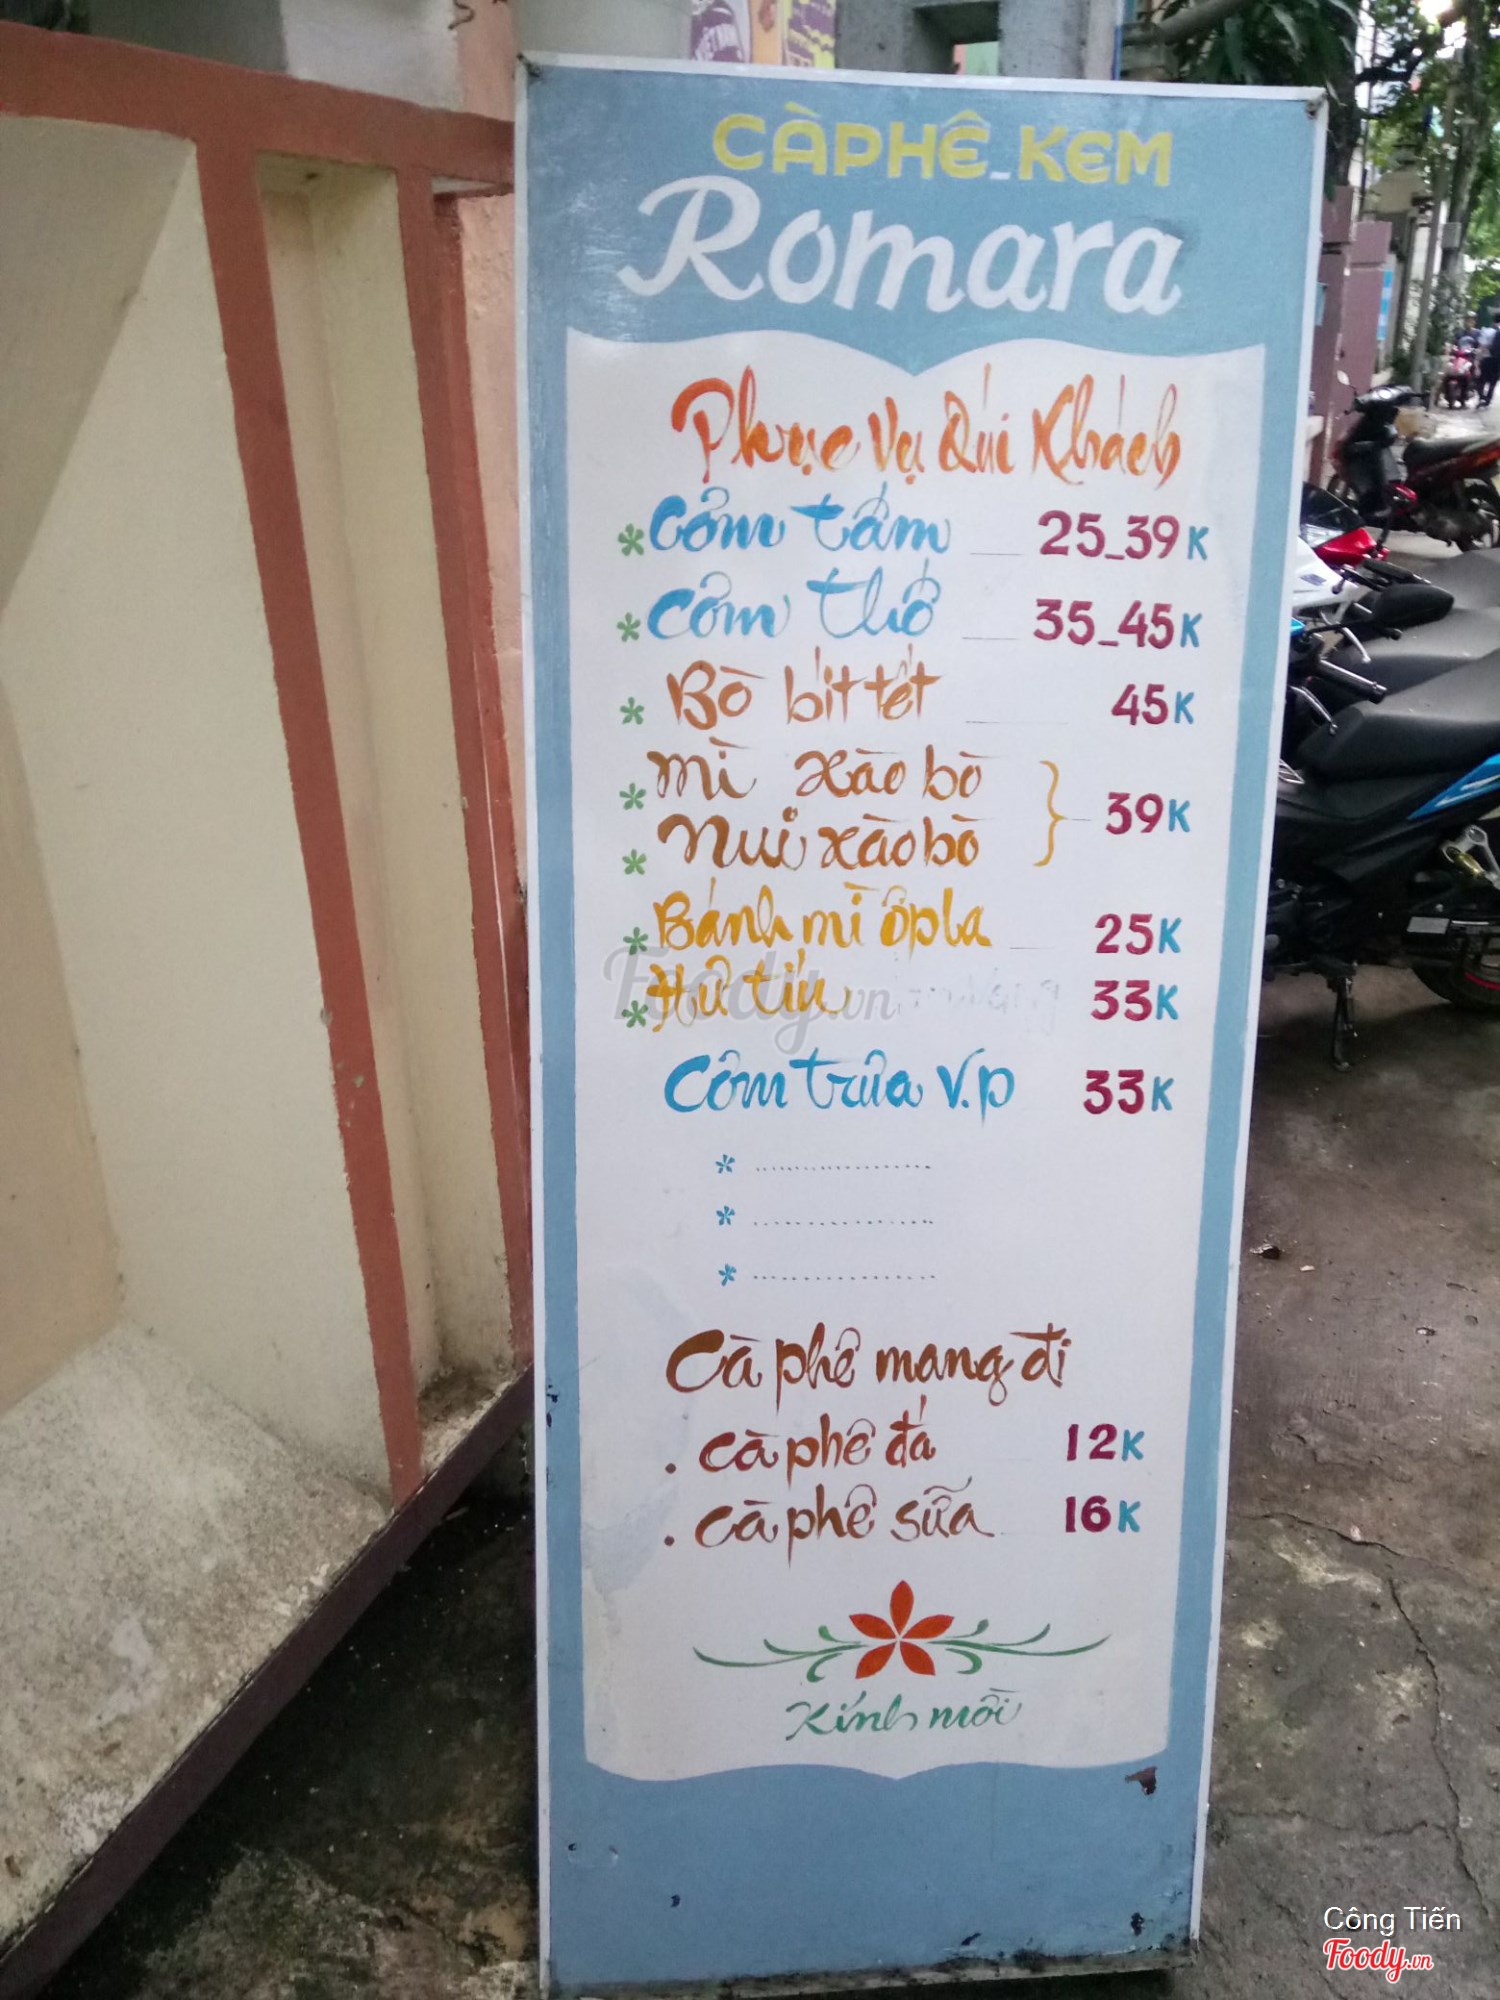 CÀPHÊ_KEM
Romara
Phục Vụ Quí Khách
* Cơm tấm 25_39K
* Cơm thố 35_45K
* Bò bít tết 45K
* Mì xào bò
} 39K
* Nui xào bò
* Bánh mì ốpla 25K
* Hủ tiếu 33K
Foody.vn
Cơm trưa V.P 33K
*
*
*
Cà phê mang đi
. Cà phê đá 12K
. Cà phê sữa 16K
Kính mời
Công Tiến
Foody.vn